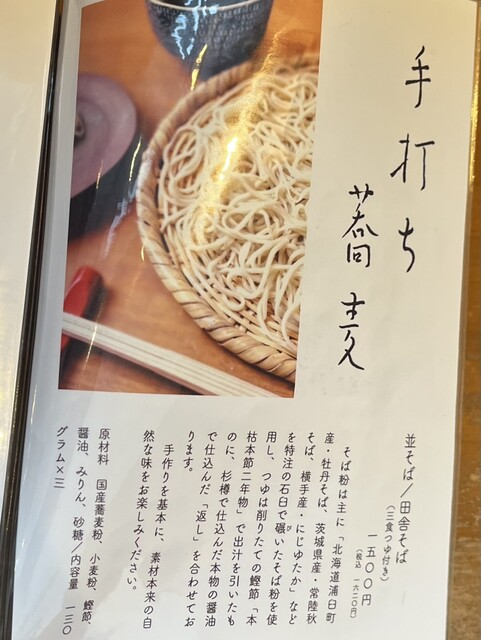 手打ち
蕎麦
並そば／田舎そば
（三食つゆ付き）
一五〇〇円
（税込 一六二〇円）
そば粉は主に「北海道浦臼町
産・牡丹そば、茨城県産・常陸秋
そば、横手産・にじゆたか」など
を特注の石臼で碾いたそば粉を使
用し、つゆは削りたての鰹節「本
枯本節二年物」で出汁を引いたも
のに、杉樽で仕込んだ本物の醤油
で仕込んだ「返し」を合わせてお
ります。
手作りを基本に、素材本来の自
然な味をお楽しみください。
原材料 国産蕎麦粉、小麦粉、鰹節、
醤油、みりん、砂糖／内容量 一三〇
グラム×三